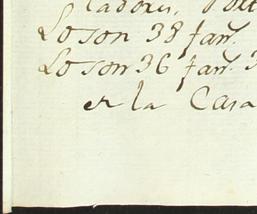 tadores, Polt
Loson 38 fan.
Loson 36 fan. 3
en la Casa